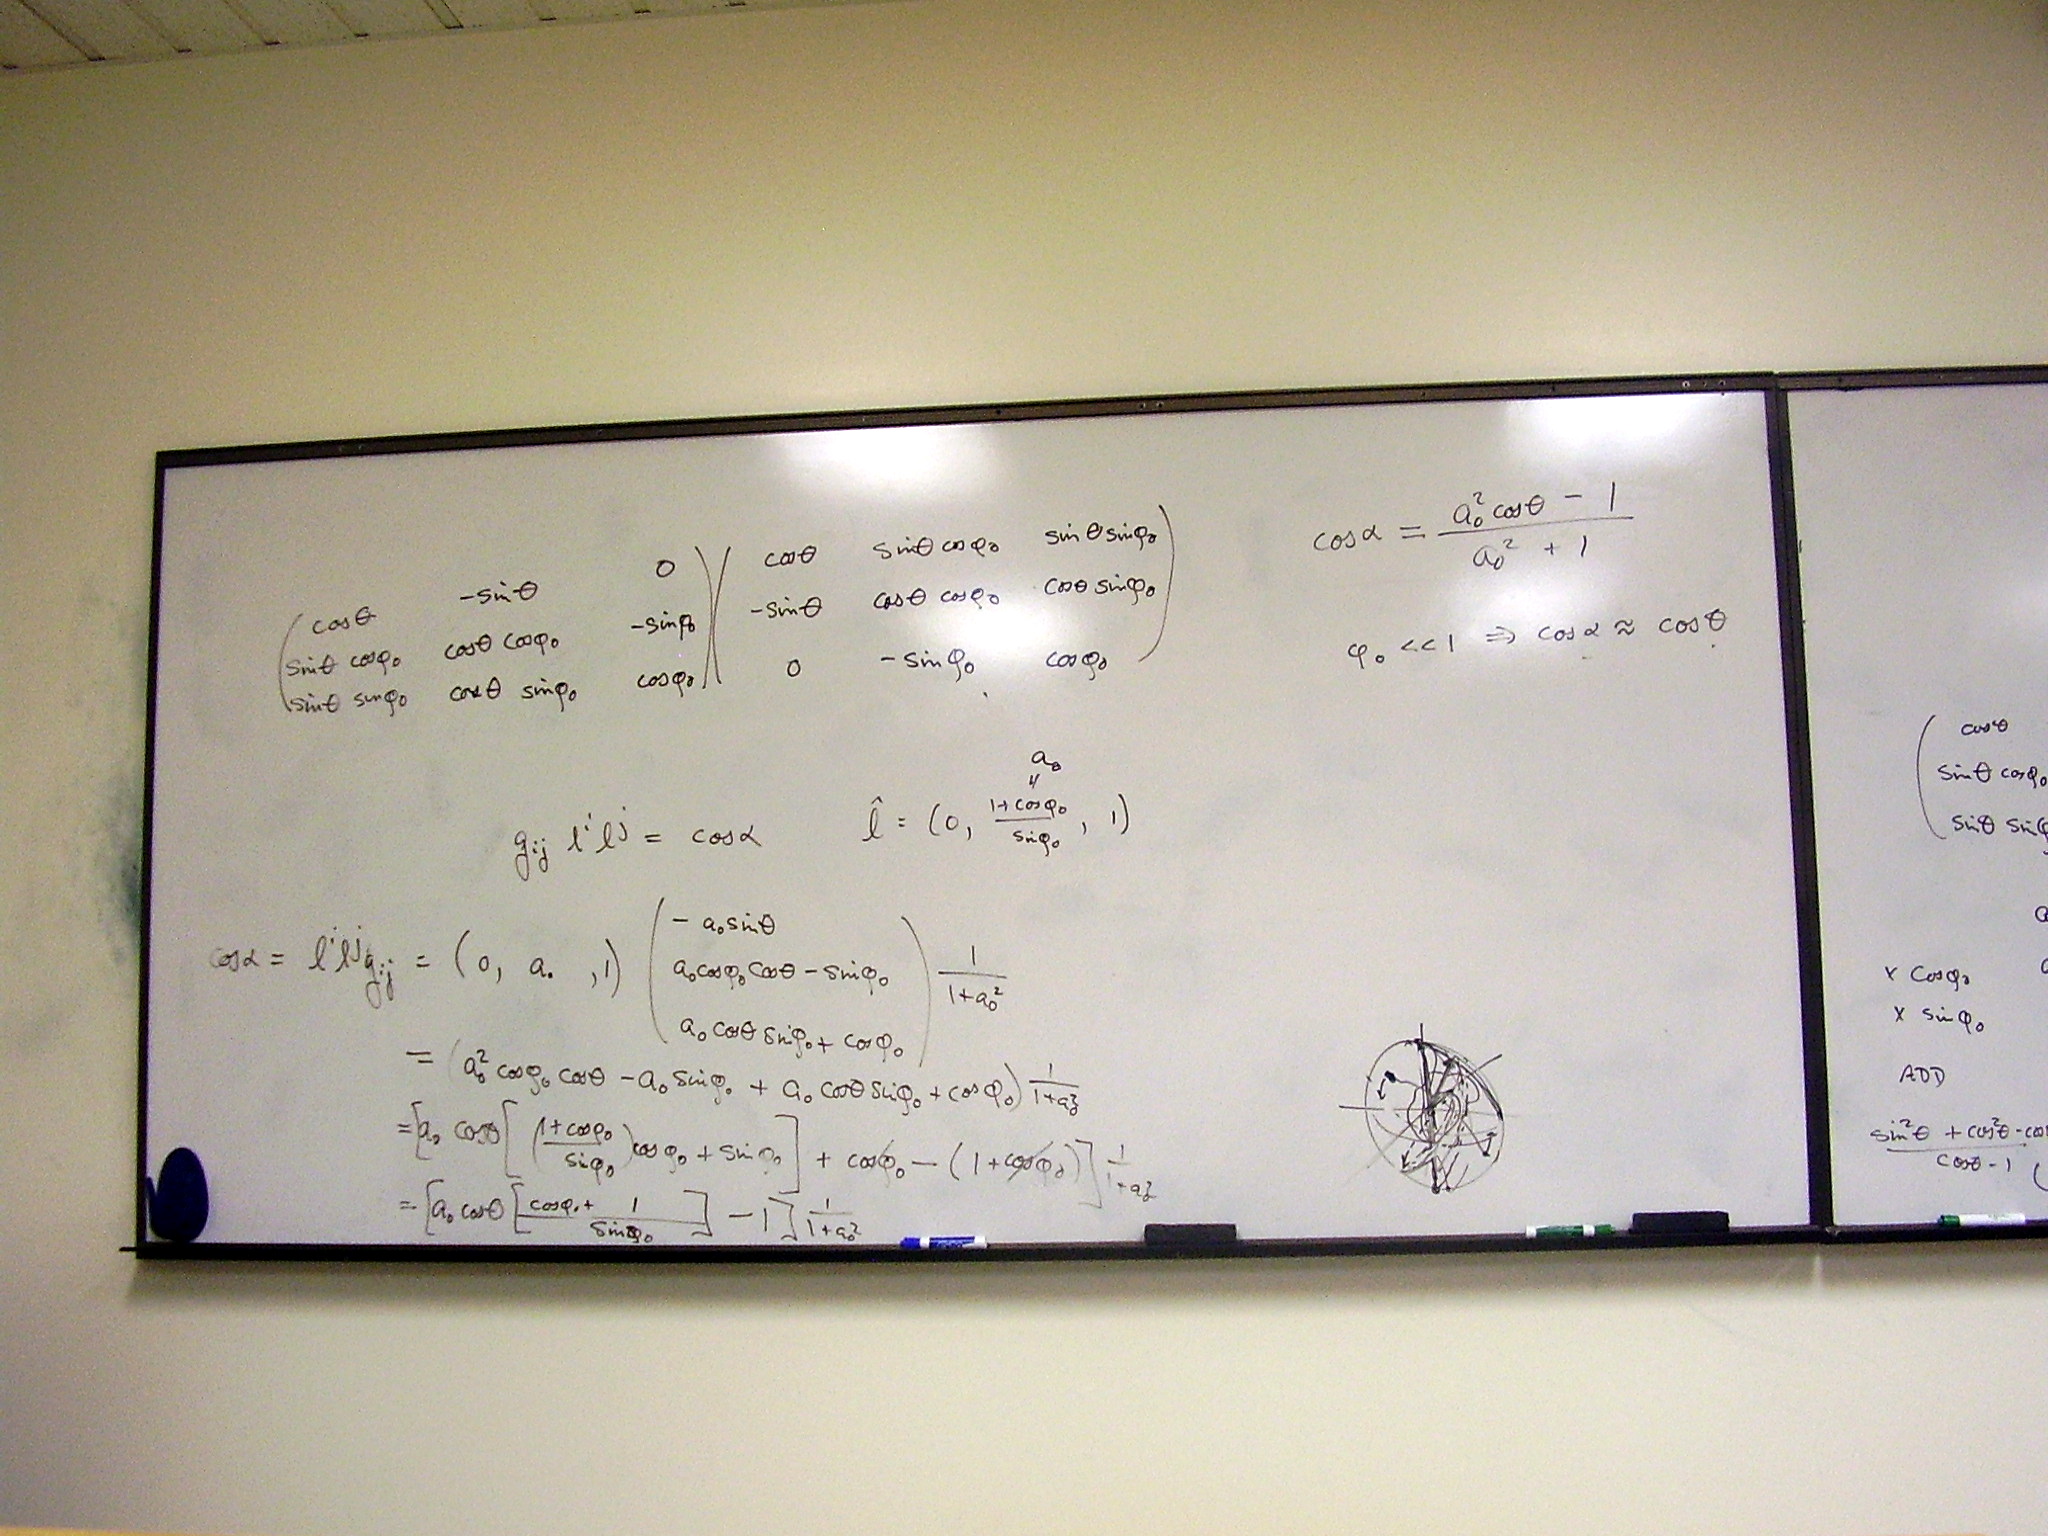 ( cosθ -sinθ 0 ) ( cosθ sinθ cosφ₀ sinθ sinφ₀ )
( sinθ cosφ₀ cosθ cosφ₀ -sinφ₀ ) ( -sinθ cosθ cosφ₀ cosθ sinφ₀ )
( sinθ sinφ₀ cosθ sinφ₀ cosφ₀ ) ( 0 -sinφ₀ cosφ₀ )
cosα = (a₀² cosθ - 1) / (a₀² + 1)
φ₀ << 1 ⇒ cosα ≈ cosθ
a₀
=
g_ij l^i l^j = cosα l̂ = (0, (1+cosφ₀)/sinφ₀, 1)
cosα = l^i l^j g_ij = (0, a₀, 1) ( -a₀ sinθ
a₀ cosφ₀ cosθ - sinφ₀
a₀ cosθ sinφ₀ + cosφ₀ ) 1/(1+a₀²)
= (a₀² cosφ₀ cosθ - a₀ sinφ₀ + a₀ cosθ sinφ₀ + cosφ₀) 1/(1+a₀²)
= [a₀ cosθ [((1+cosφ₀)/sinφ₀) cosφ₀ + sinφ₀] + cosφ₀ - (1+cosφ₀)] 1/(1+a₀²)
= [a₀ cosθ [(cosφ₀ + 1)/sinφ₀] - 1] 1/(1+a₀²)
cosθ
sinθ cosφ₀
sinθ sinφ
x cosφ₀
x sinφ₀
ADD
sin²θ + cos²θ - cos
cosθ - 1